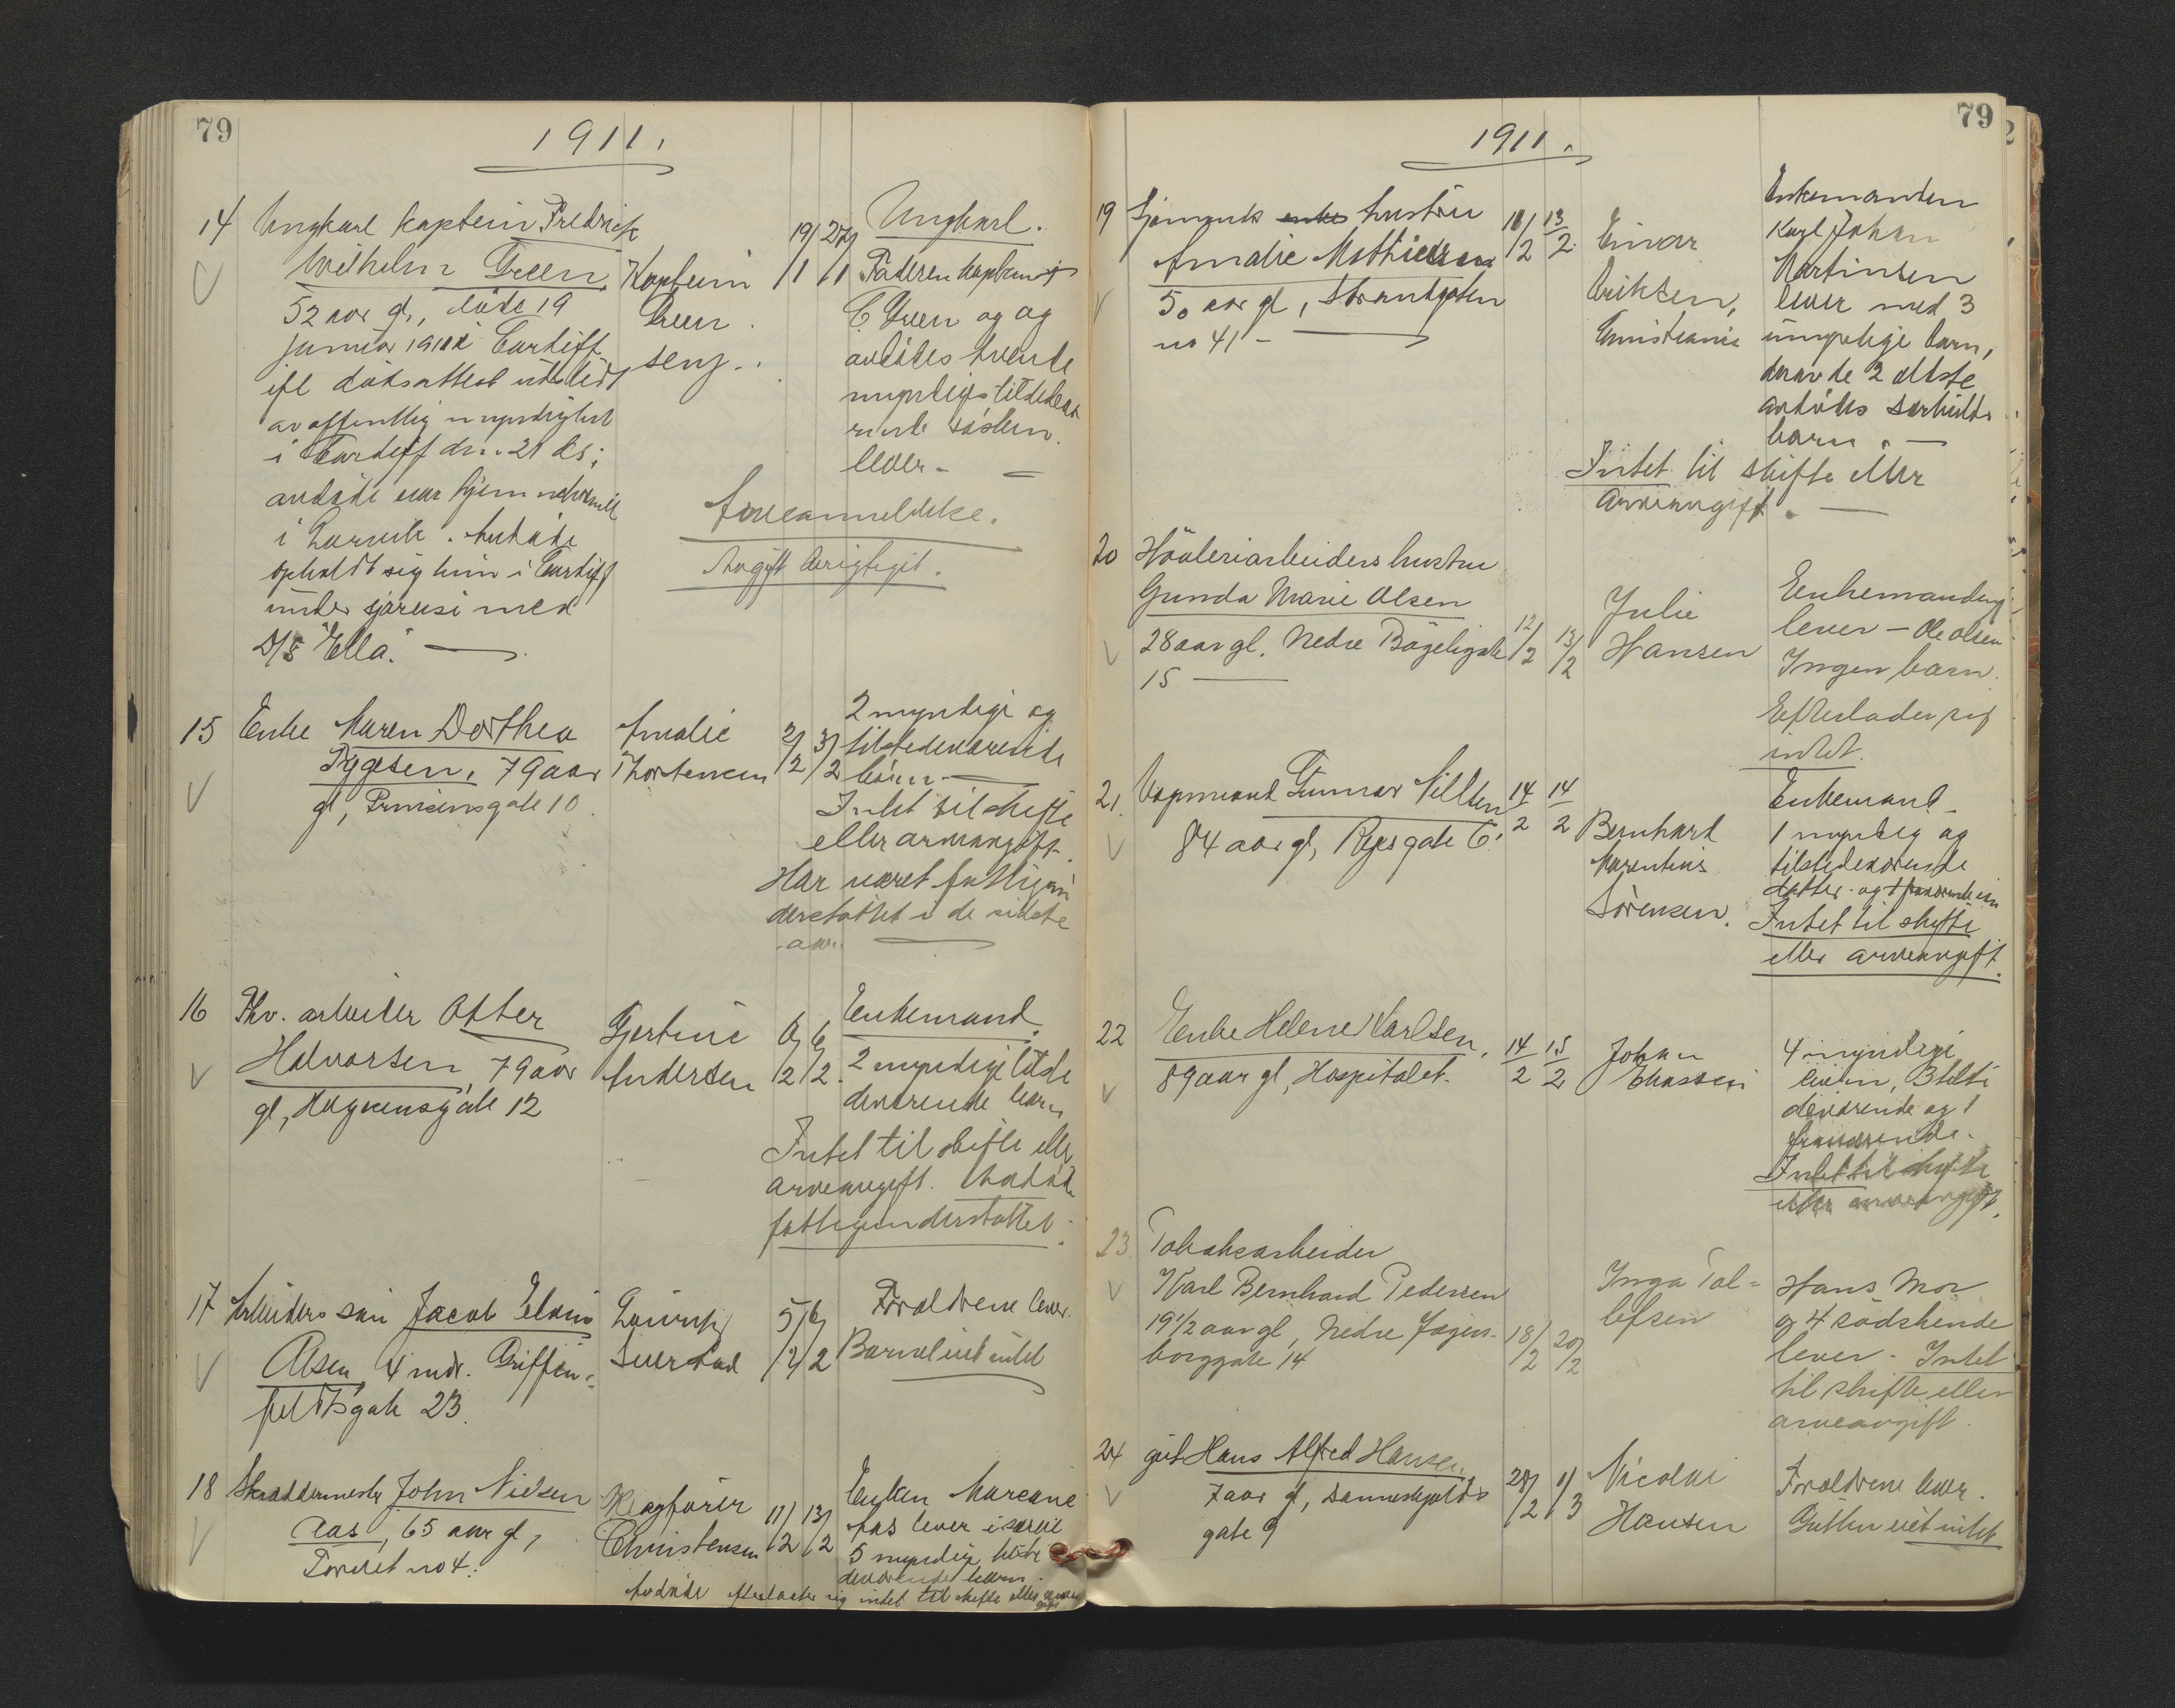 79
1911.
14 Ungkarl kaptein Fredrik
Wilhelm Green,
52 aar gl., døde 19
januar 1911 i Cardiff
ifl dødsattest utstedt
av offentlig myndighet
i Cardiff den 21 ds;
avdøde var hjemmehørende
i Larvik. Avdøde
opholdt sig kun i Cardiff
under sjøreise med
D/S "Ella".
Kaptein
Green
senj.
19/1 27/1
Ungkarl.
Faderen kaptein
C. Green og
avdødes
myndige tilstedevæ
rende søsken
lever.
Arveanmeldelse.
Avgift
15 Enke Maren Dorthea
Tygesen, 79 aar
gl, Prinsensgate 10
Amalie
Thorstensen
2/2 3/2
2 myndige og
tilstedeværende
børn.
Intet til skifte
eller arveavgift.
Har været fattigun
derstøttet i de sidste
aar.
16 Fhv. arbeider Otter
Halvorsen, 79 aar
gl, Haycensgate 12
Gjertine
Andersen
6/2 6/2
Enkemand.
2 myndige tilste
deværende barn
Intet til skifte eller
arveavgift. Avdøde
fattigunderstøttet.
17 Arbeiders søn Jacob Edvin
Olsen, 4 mdr. Griffen-
feldtsgate 23.
Severstad
5/2 6/2
Forældrene lever.
Barnet eiet intet
18 Skræddermester John Nielsen
Aas, 65 aar gl,
Torvet no 4.
Kragfører
Christensen
11/2 13/2
Enken Mareane
Aas lever
5 myndige tilste
deværende børn.
Avdøde efterlader sig intet til skifte eller arveav
gift
79
1911.
19 Sjømands enkes hustru
Amalie Mathiesen
50 aar gl, Strandgaten
no 41 -
10/2 13/2
Einar
Eriksen,
Christiania
Enkemanden
Karl Johan
Martinsen
lever med 3
umyndige barn,
derav de 2 ældste
avdødes særkulds
barn. -
Intet til skifte eller
arveavgift. -
20 Høvleriarbeiders hustru
Gunda Marie Olsen
28 aar gl. Nedre Bøgeligate
15
12/2 13/2
Julie
Hansen
Enkemanden
lever - Ole Olsen
Ingen barn.
Efterlader sig
intet.
21. Vognmand Gunnar Nilsen
84 aar gl, Rejesgate 6.
14/2 14/2
Bernhard
Marentius
Sørensen.
Enkemand -
1 myndig og
tilstedeværende
datter. og 1 fraværende søn
Intet til skifte
eller arveavgift.
22 Enke Helene Karlsen,
89 aar gl, Hospitalet.
14/2 15/2
Johan
Eliassen
4 myndige
børn, 3 tilste
deværende og 1
fraværende.
Intet til skifte
eller arveavgift.
23. Tobaksarbeider
Karl Bernhard Pedersen
19 1/2 aar gl, Nedre Jægers-
borggate 14
18/2 20/2
Inga Tol-
lefsen
Hans Mor
og 4 sødskende
lever - Intet
til skifte eller
arveavgift.
24 gut Hans Alfred Hansen
7 aar gl, Danneskjolds
gate 9
28/2 1/3
Nicolai
Hansen
Forældrene lever.
Gutten eiet intet